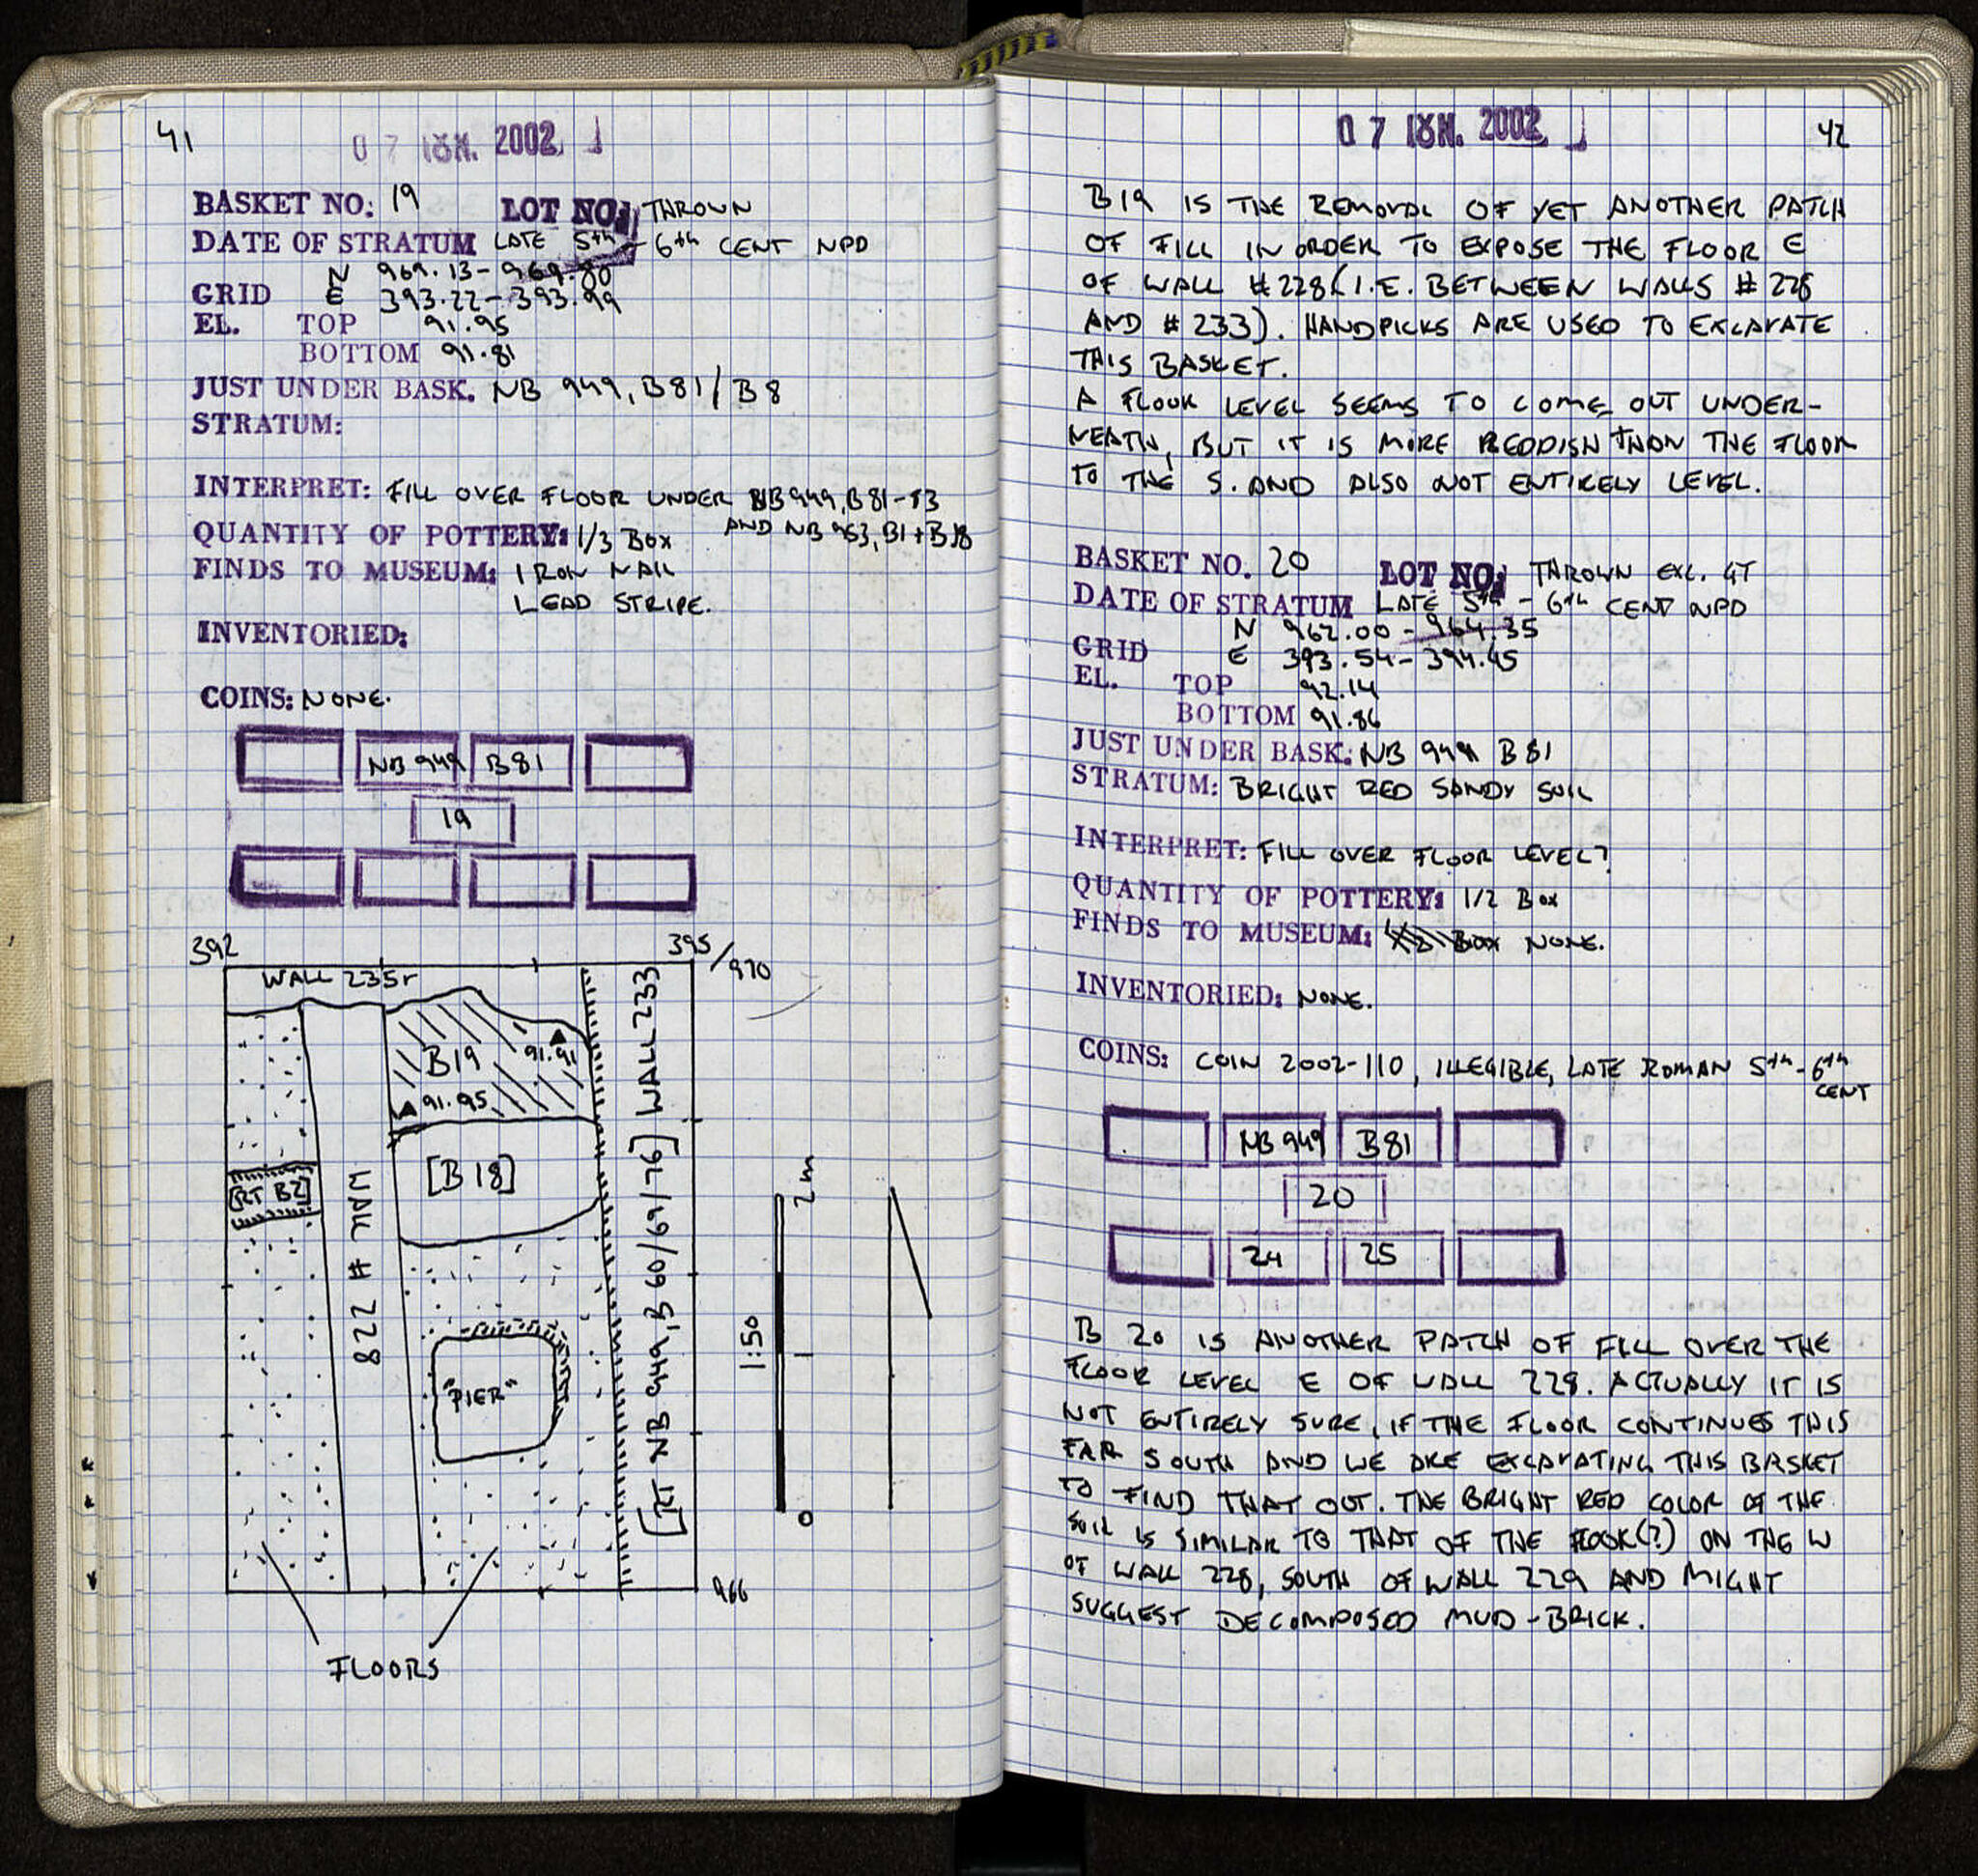 41
07 ΙΟΥΝ. 2002
BASKET NO: 19 LOT NO: THROWN
DATE OF STRATUM LATE 5th - 6th CENT NPD
N 969.13 - 969.80
GRID E 393.22 - 393.99
EL. TOP 91.95
BOTTOM 91.81
JUST UNDER BASK. NB 949, B81/B8
STRATUM:
INTERPRET: FILL OVER FLOOR UNDER NB 949, B81-83
AND NB 953, B1+B18
QUANTITY OF POTTERY: 1/3 BOX
FINDS TO MUSEUM: IRON NAIL
LEAD STRIPE.
INVENTORIED:
COINS: NONE.
NB 949 B81
19
392 395/970
WALL 235r
B19
91.91
91.95
[B18]
[RT B2]
WALL # 228
"PIER"
[RT NB 949, B 60/69/76] WALL 233
2m
1
1:50
0
966
FLOORS
07 ΙΟΥΝ. 2002
42
B19 IS THE REMOVAL OF YET ANOTHER PATCH
OF FILL IN ORDER TO EXPOSE THE FLOOR E
OF WALL #228 (I.E. BETWEEN WALLS #228
AND #233). HANDPICKS ARE USED TO EXCAVATE
THIS BASKET.
A FLOOR LEVEL SEEMS TO COME OUT UNDER-
NEATH, BUT IT IS MORE REDDISH THAN THE FLOOR
TO THE S. AND ALSO NOT ENTIRELY LEVEL.
BASKET NO. 20 LOT NO: THROWN EXC. GT
DATE OF STRATUM LATE 5th - 6th CENT NPD
N 962.00 - 964.35
GRID E 393.54 - 394.45
EL. TOP 92.14
BOTTOM 91.86
JUST UNDER BASK: NB 949 B81
STRATUM: BRIGHT RED SANDY SOIL
INTERPRET: FILL OVER FLOOR LEVEL?
QUANTITY OF POTTERY: 1/2 BOX
FINDS TO MUSEUM: NONE.
INVENTORIED: NONE.
COINS: COIN 2002-110, ILLEGIBLE, LATE ROMAN 5th - 6th
CENT
NB 949 B81
20
24 25
B 20 IS ANOTHER PATCH OF FILL OVER THE
FLOOR LEVEL E OF WALL 228. ACTUALLY IT IS
NOT ENTIRELY SURE, IF THE FLOOR CONTINUES THIS
FAR SOUTH AND WE ARE EXCAVATING THIS BASKET
TO FIND THAT OUT. THE BRIGHT RED COLOR OF THE
SOIL IS SIMILAR TO THAT OF THE FLOOR(?) ON THE W
OF WALL 228, SOUTH OF WALL 229 AND MIGHT
SUGGEST DECOMPOSED MUD-BRICK.